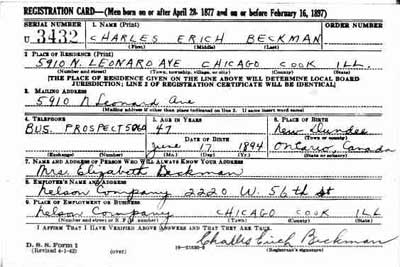 REGISTRATION CARD—(Men born on or after April 28, 1877 and on or before February 16, 1897)
SERIAL NUMBER 1. NAME (Print)
U 3432 CHARLES ERICH BECKMAN
(First) (Middle) (Last)
2. PLACE OF RESIDENCE (Print)
5910 N. LEONARD AVE CHICAGO COOK ILL.
(Number and street) (Town, township, village, or city) (County) (State)
[THE PLACE OF RESIDENCE GIVEN ON THE LINE ABOVE WILL DETERMINE LOCAL BOARD
JURISDICTION; LINE 2 OF REGISTRATION CERTIFICATE WILL BE IDENTICAL]
3. MAILING ADDRESS
5910 N Leonard Ave
(Mailing address if other than place indicated on line 2. If same insert word same)
4. TELEPHONE 5. AGE IN YEARS 6. PLACE OF BIRTH
BUS. PROSPECT 5060 47 New Dundee
DATE OF BIRTH (Town or county)
June 17 1894 Ontario, Canada
(Exchange) (Number) (Mo.) (Day) (Yr.) (State or country)
7. NAME AND ADDRESS OF PERSON WHO WILL ALWAYS KNOW YOUR ADDRESS
Mrs. Elizabeth Beckman
8. EMPLOYER'S NAME AND ADDRESS
Nelson Company 2220 W. 56th St
9. PLACE OF EMPLOYMENT OR BUSINESS
Nelson Company CHICAGO COOK ILL
(Number and street or R. F. D. number) (Town) (County) (State)
I AFFIRM THAT I HAVE VERIFIED ABOVE ANSWERS AND THAT THEY ARE TRUE.
D. S. S. Form 1
(Revised 4-1-42) (over) Charles Erich Beckman
(Registrant's signature)